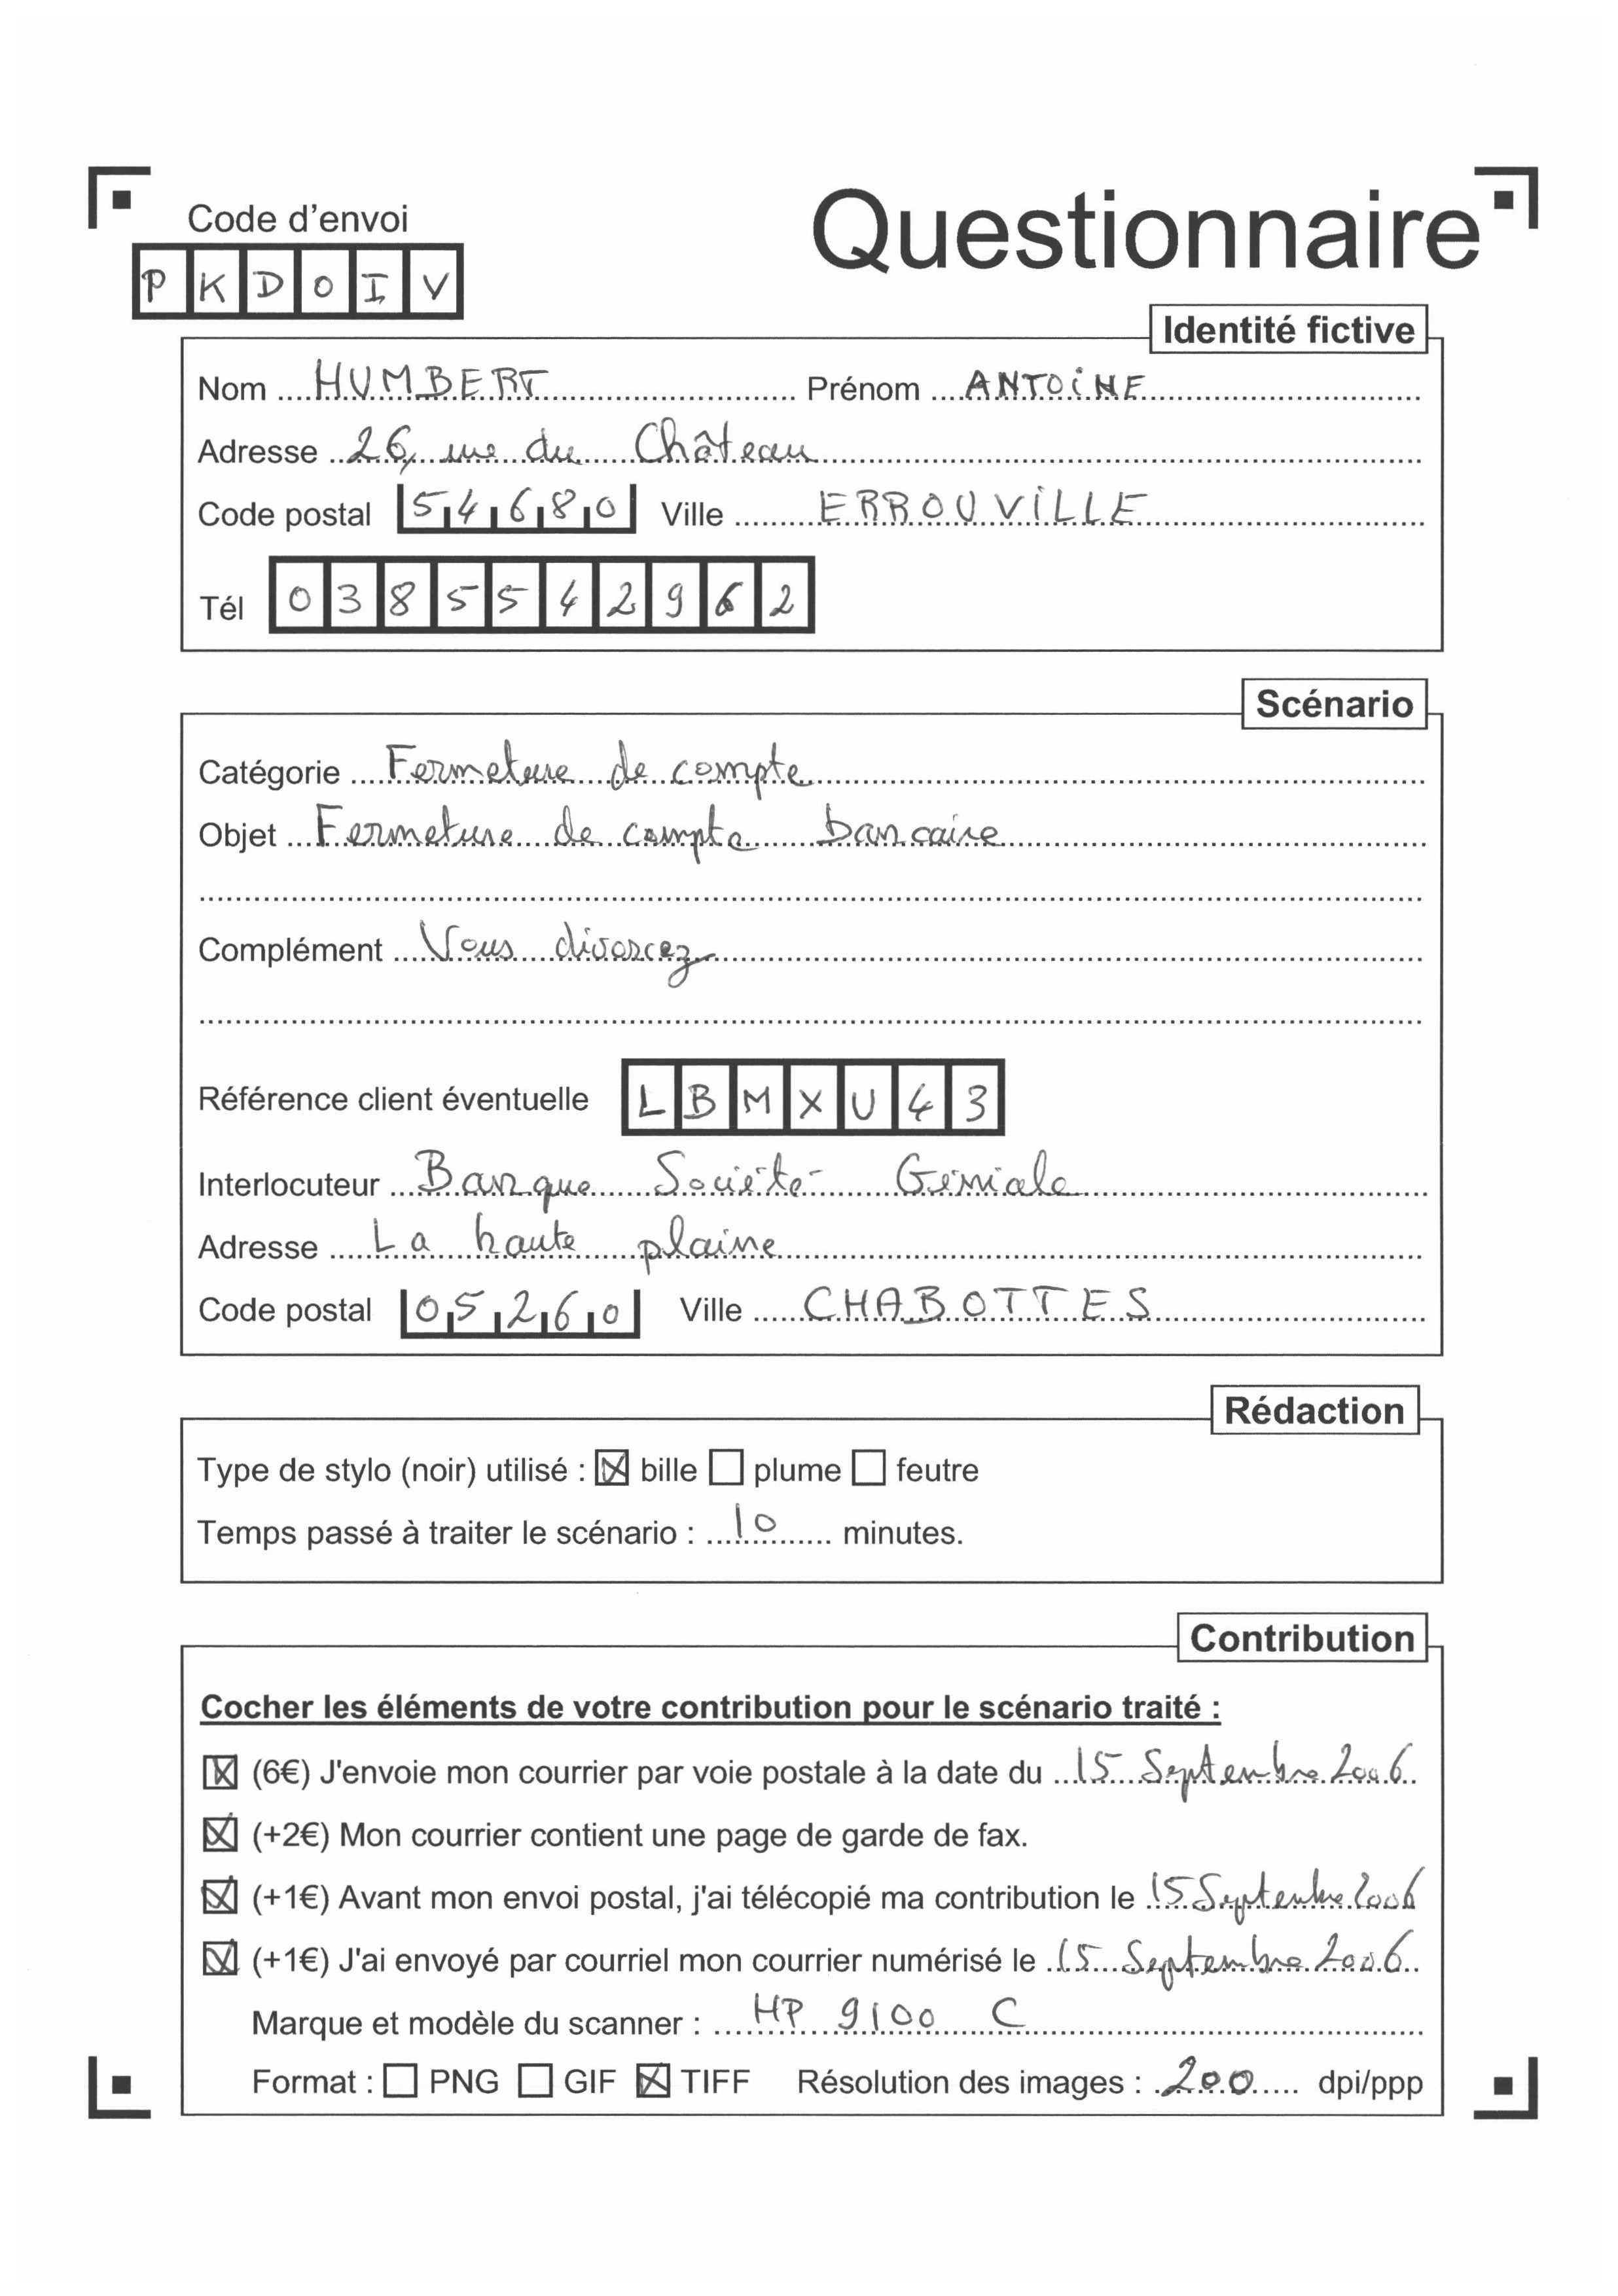 Code d'envoi
Questionnaire
PKDOIV
Identité fictive
Nom HUMBERT Prénom ANTOINE
Adresse 26, rue du Château
Code postal 54680 Ville ERROUVILLE
Tél 0385542962
Scénario
Catégorie Fermeture de compte
Objet Fermeture de compte bancaire
Complément Vous divorcez
Référence client éventuelle LBMXU43
Interlocuteur Banque Société Géniale
Adresse La haute plaine
Code postal 05260 Ville CHABOTTES
Rédaction
Type de stylo (noir) utilisé : ☒ bille ☐ plume ☐ feutre
Temps passé à traiter le scénario : 10 minutes.
Contribution
Cocher les éléments de votre contribution pour le scénario traité :
☒ (6€) J'envoie mon courrier par voie postale à la date du 15 Septembre 2006
☒ (+2€) Mon courrier contient une page de garde de fax.
☒ (+1€) Avant mon envoi postal, j'ai télécopié ma contribution le 15 Septembre 2006
☒ (+1€) J'ai envoyé par courriel mon courrier numérisé le 15 Septembre 2006
Marque et modèle du scanner : HP 9100 C
Format : ☐ PNG ☐ GIF ☒ TIFF Résolution des images : 200 dpi/ppp